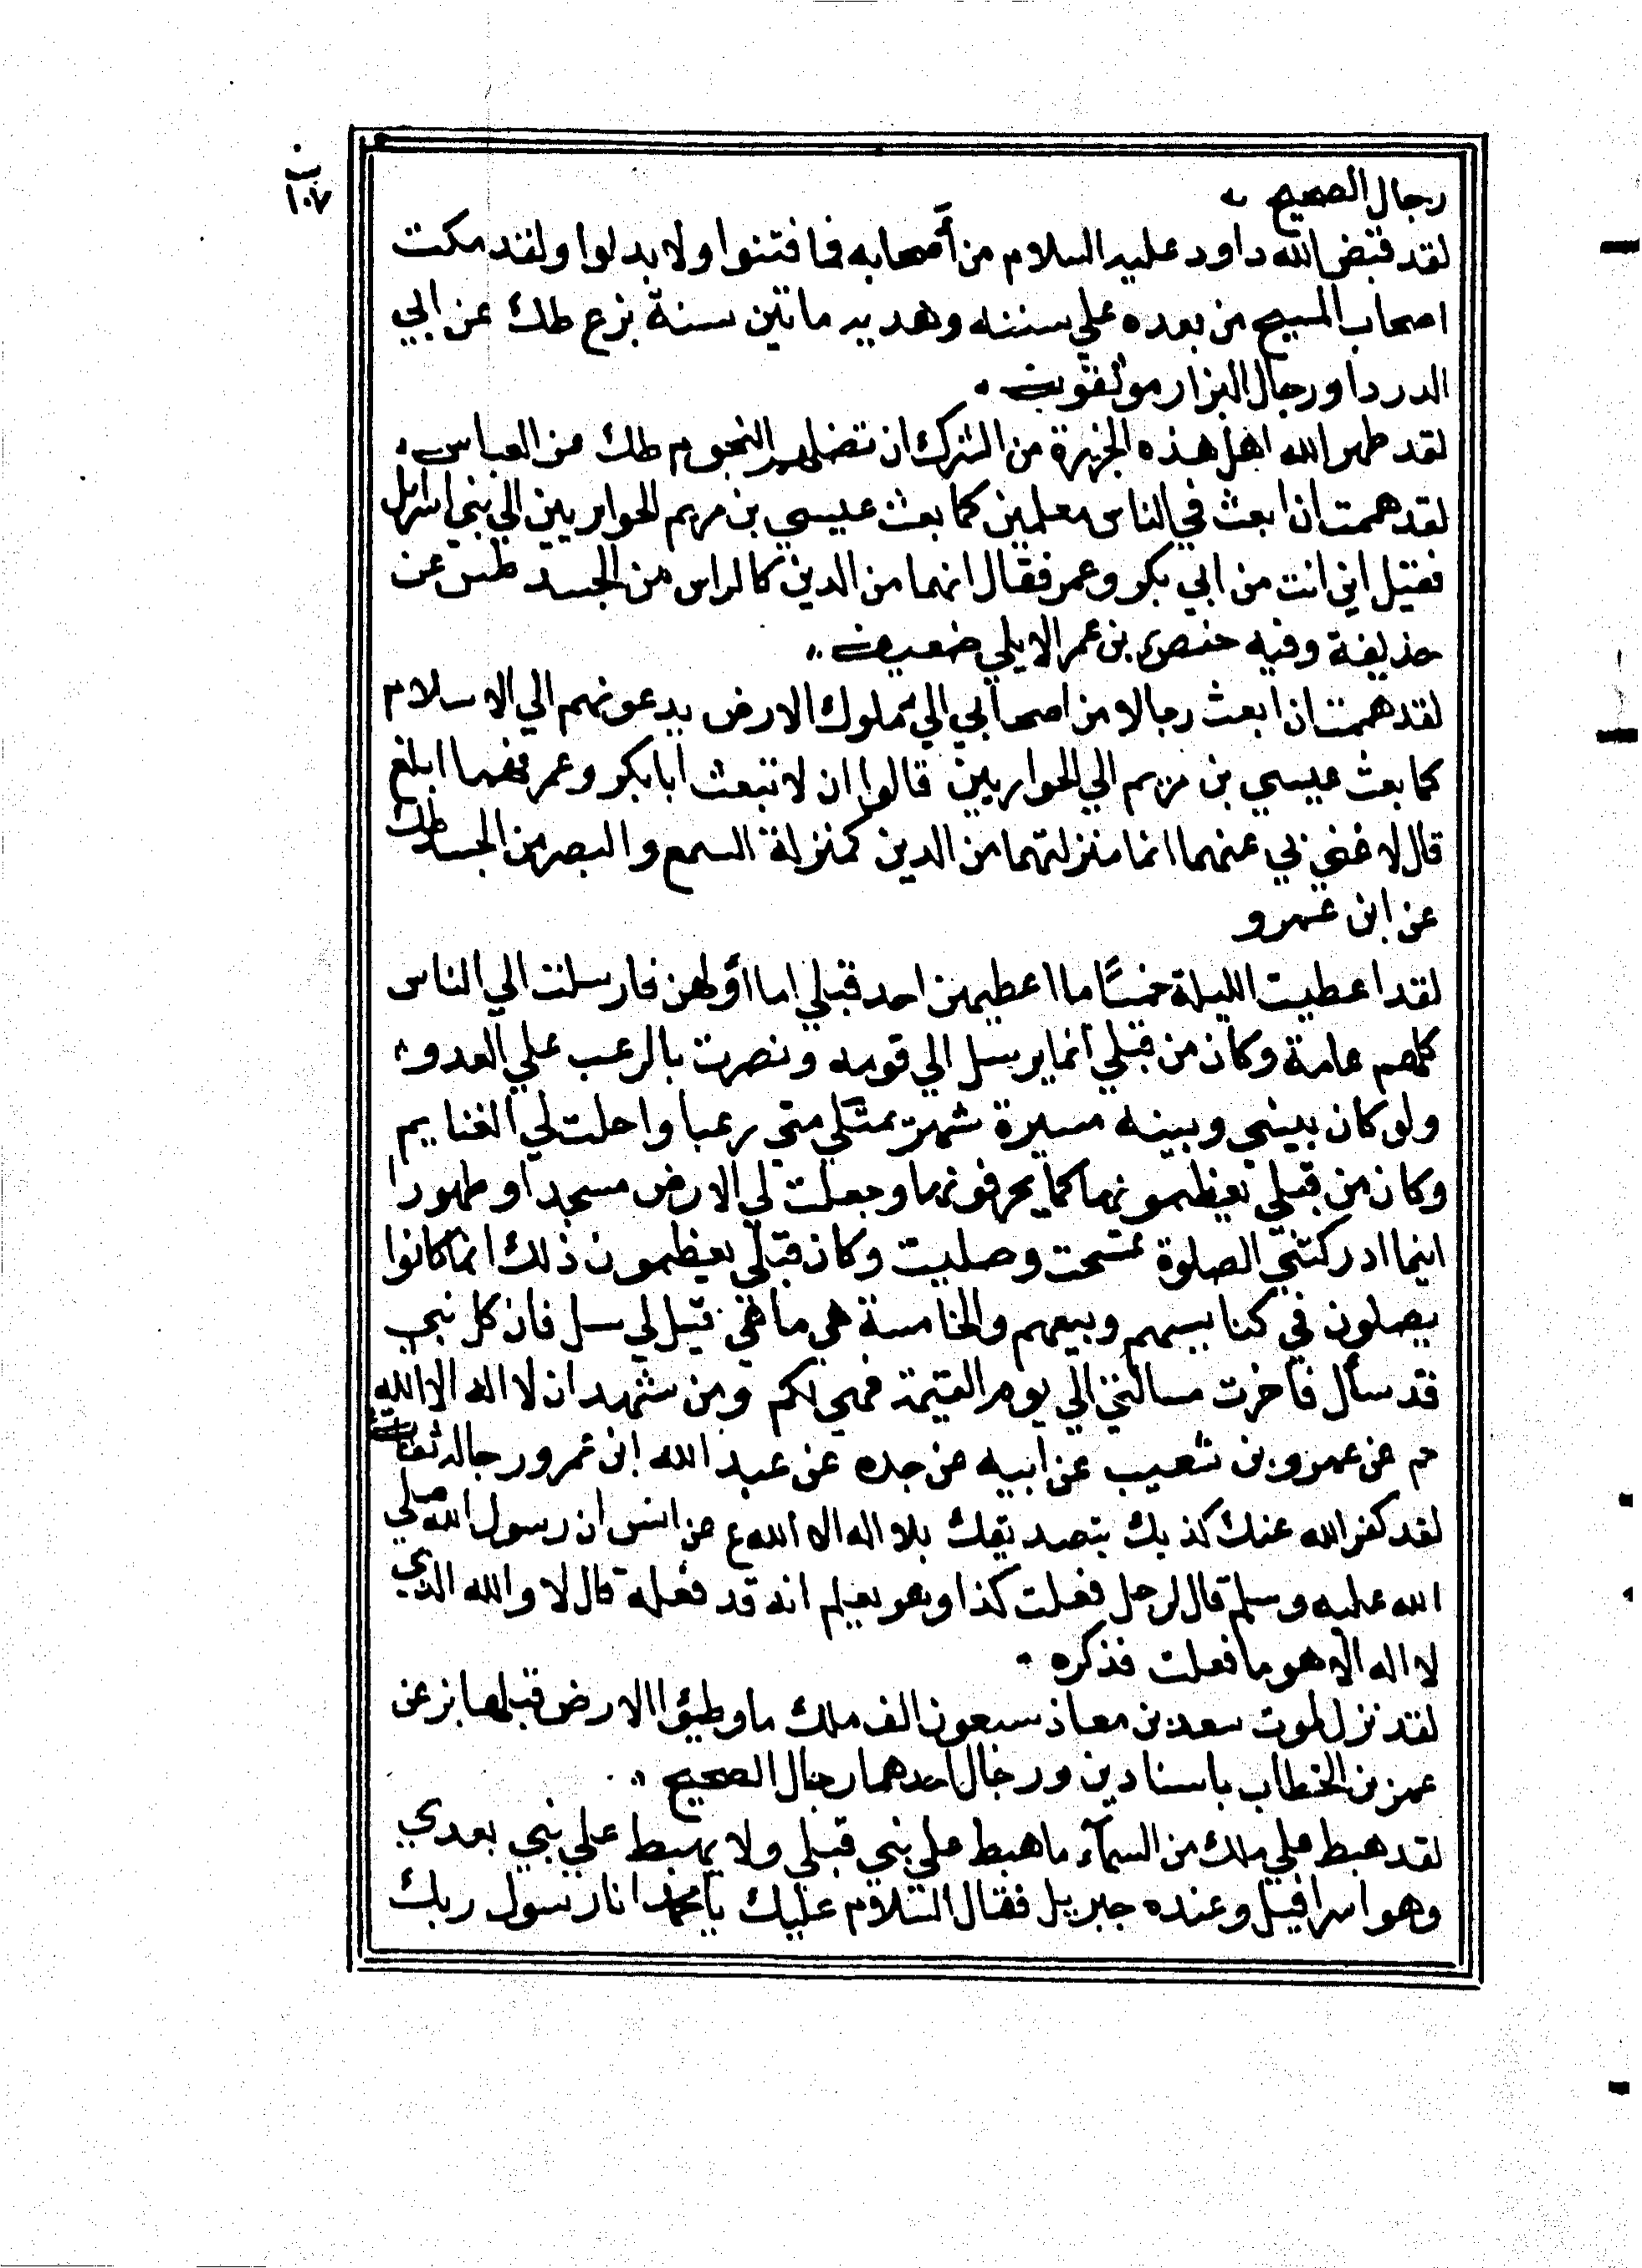 ن
١٠٧
رجال الصحيح
لقد قبض الله داود عليه السلام من أصحابه فما فتنوا ولا بدلوا ولقد مكث
اصحاب المسيح من بعده علي سننه وهديه ماتين سنة بز ع طك عن ابي
الدردا ورجال البزار موثقون
لقد طهر الله اهل هذه الجزيرة من الشرك ان تضلهم النجوم طك عن العباس
لقد هممت ان ابعث في الناس معلمين كما بعث عيسي بن مريم الحواريين الي بني اسرائل
فقيل اين انت من ابي بكر وعمر فقال انهما من الدين كالراس من الجسد طس عن
حذيفة وفيه حفص بن عمر الايلي ضعيف
لقد هممت ان ابعث رجالا من اصحابي الي ملوك الارض يدعونهم الي الاسلام
كما بعث عيسي بن مريم الي الحواريين قالوا ان لا تبعث ابا بكر وعمر فهما ابلغ
قال لا غني بي عنهما انما منزلتهما من الدين كمنزلة السمع والبصر من الجسد طك
عن ابن عمرو
لقد اعطيت الليلة خمسًا ما اعطيهن احد قبلي اما أولهن فارسلت الي الناس
كلهم عامة وكان من قبلي انما يرسل الي قومه ونصرت بالرعب علي العدو
ولو كان بيني وبينه مسيرة شهر تمتلي مني رعبا واحلت لي الغنايم
وكان من قبلي يعظمونها كما يحرفونها وجعلت لي الارض مسجدا وطهورا
اينما ادركتني الصلوة تمسحت وصليت وكان قبلي يعظمون ذلك انما كانوا
يصلون في كنايسهم وبيعهم والخامسة هي ما هي قيل لي سل فان كل نبي
قد سأل فاخرت مسالتي الي يوم القيمة فهي لكم ومن شهد ان لا اله الا الله
حم عن عمرو بن شعيب عن ابيه عن جده عن عبد الله ابن عمرو رجاله ثقات
لقد كفر الله عنك كذبك بتصديقك بلا اله الا الله ع عن انس ان رسول الله صلي
الله عليه وسلم قال لرجل فعلت كذا وهو يعلم انه قد فعله قال لا والله الذي
لا اله الا هو ما فعلت فذكره
لقد نزل لموت سعد بن معاذ سبعون الف ملك ما وطيؤا الارض قبلها بز عن
عمر بن الخطاب باسنادين ورجال احدهما رجال الصحيح
لقد هبط علي ملك من السمآء ما هبط علي نبي قبلي ولا يهبط علي نبي بعدي
وهو اسرافيل وعنده جبريل فقال السلام عليك يا محمد انا رسول ربك